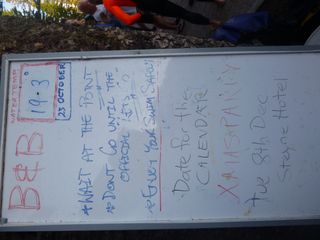 B&B
WATER TEMP
19.3°
23 OCTOBER
* WAIT AT THE POINT
* DON'T GO UNTIL THE
OFFICIAL
* ENJOY YOUR SWIM SAFELY
Date for the
CALENDAR
XMAS PARTY
Tue 8th Dec
Steyne Hotel